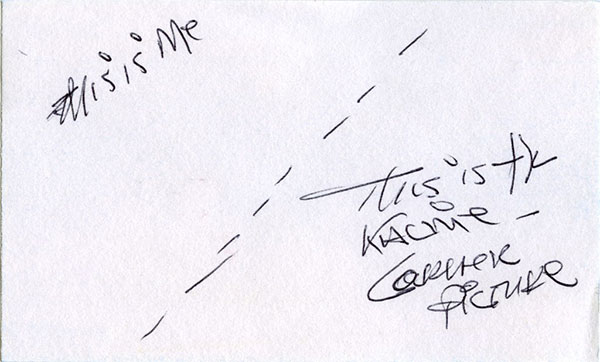 This is Me
This is th
Racine –
Corner
picture